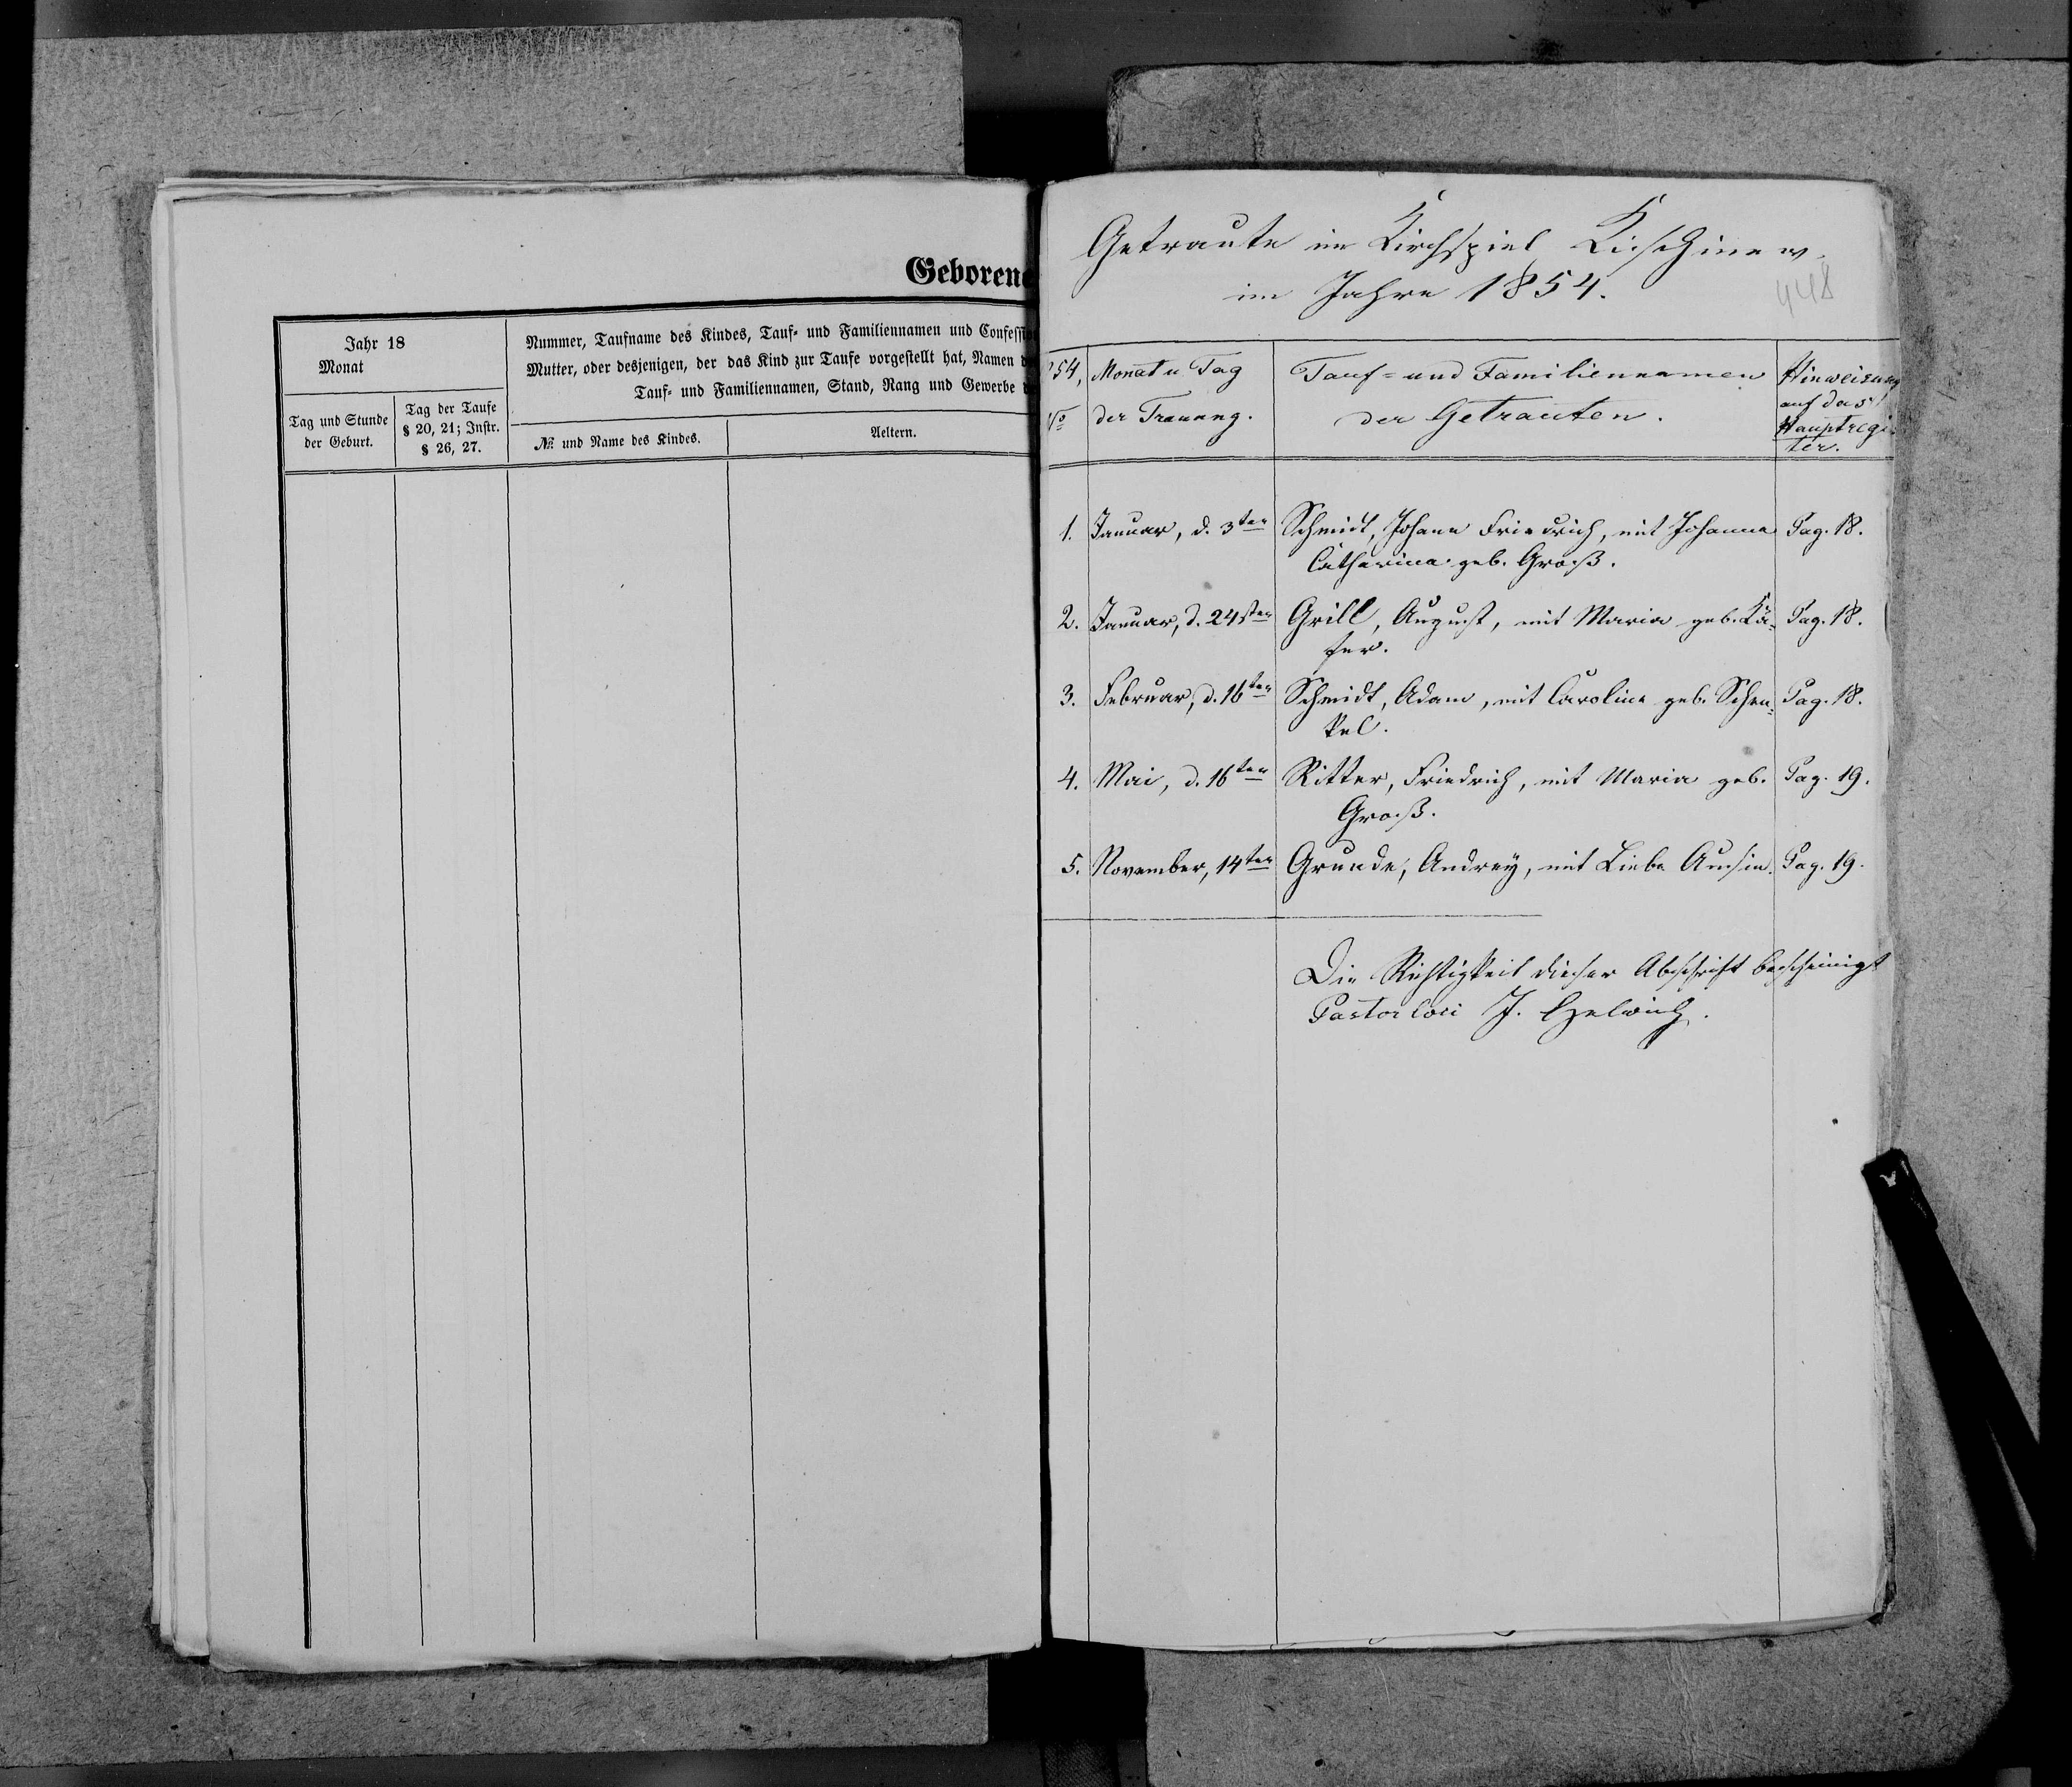 Geborene
Jahr 18
Monat
Nummer, Taufname des Kindes, Tauf- und Familiennamen und Confessi
Mutter, oder desjenigen, der das Kind zur Taufe vorgestellt hat, Namen d
Tauf- und Familiennamen, Stand, Rang und Gewerbe d
Tag und Stunde
der Geburt.
Tag der Taufe
§ 20, 21; Instr.
§ 26, 27.
№ und Name des Kindes.
Aeltern.
Getraute im Kirchspiel Kischinew.
im Jahre 1854.
448
54,
No
Monat u Tag
der Trauung.
Tauf- und Familiennamen
der Getrauten.
Hinweisung
auf das
Hauptregis-
ter.
1. Januar, d. 3ten Schmidt, Johann Friedrich, mit Johanna Pag. 18.
Catharina geb. Groß.
2. Januar, d. 24sten Grill, August, mit Maria geb. Kä- Pag. 18.
fer.
3. Februar, d. 16ten Schmidt, Adam, mit Carolina geb. Schen- Pag. 18.
kel.
4. Mai, d. 16ten Ritter, Friedrich, mit Maria geb. Pag. 19.
Groß.
5. November, 14ten Grunde, Andrey, mit Liebe Pag. 19.
Die Richtigkeit dieser Abschrift bescheinigt
Pastor loci J.